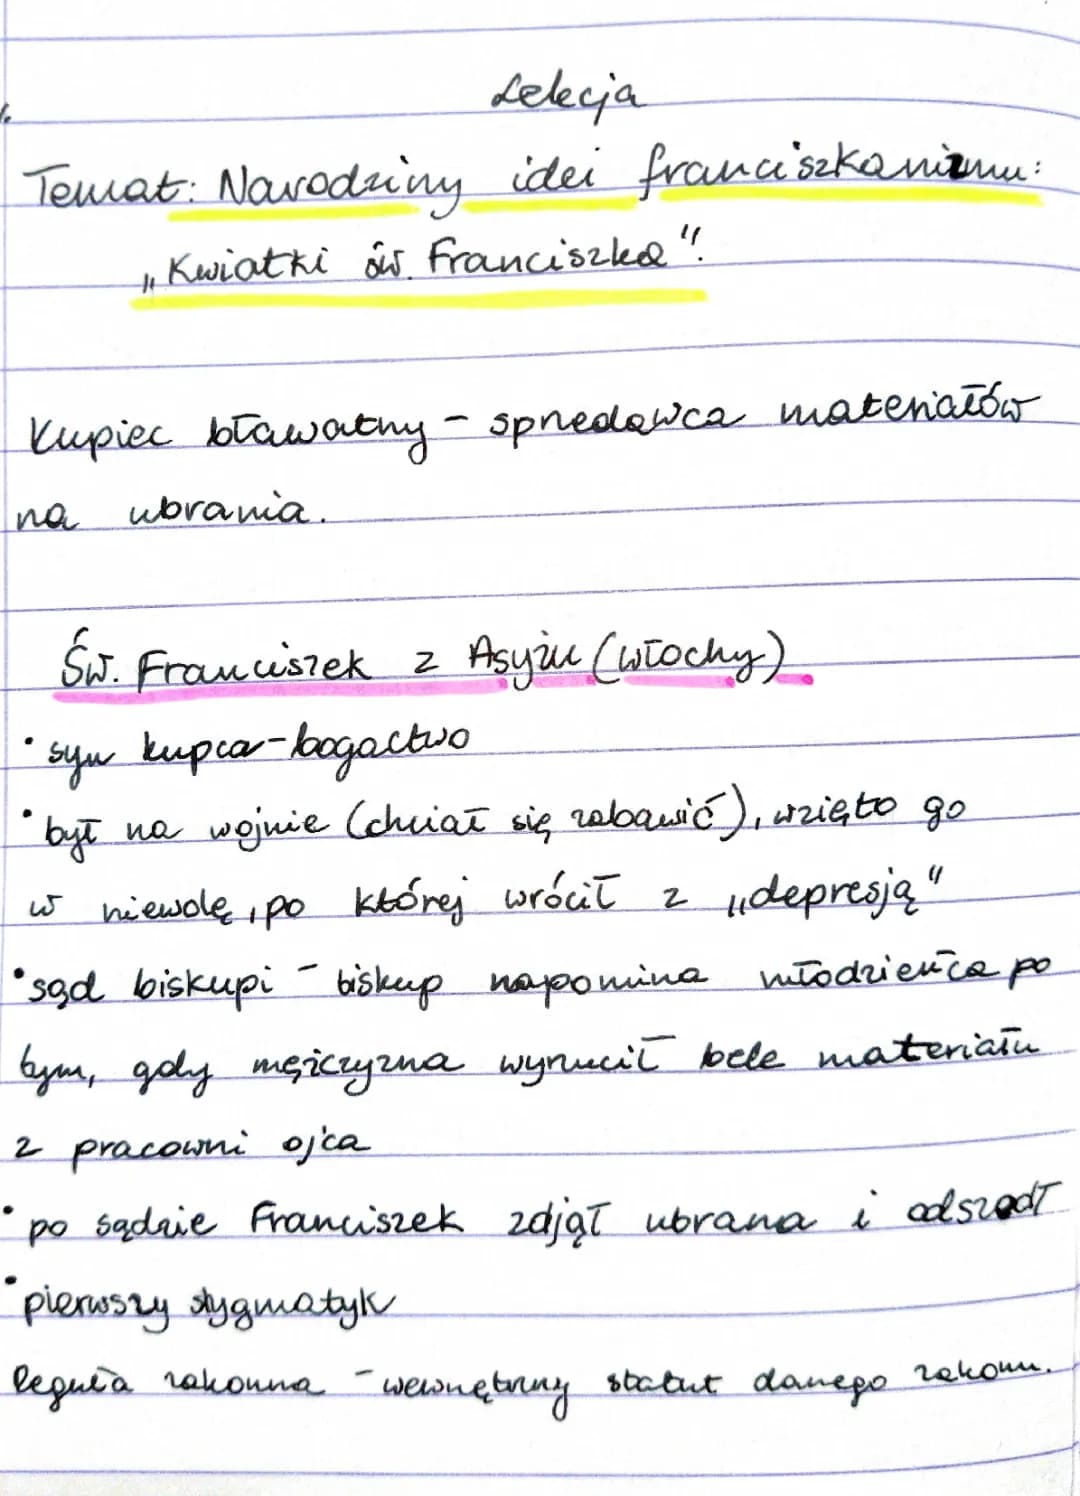 Lekcja
Temat: Narodziny idei franciszkanizmu:
„Kwiatki św. Franciszka".
Kupiec bławatny - sprzedawca materiałów
na ubrania.
Św. Franciszek z Asyżu (Włochy)
• syn kupca - bogactwo
• był na wojnie (chciał się zabawić), wzięto go
w niewolę, po której wrócił z „depresją"
• sąd biskupi - biskup napomina młodzieńca po
tym, gdy mężczyzna wyrzucił bele materiału
z pracowni ojca
• po sądzie Franciszek zdjął ubrana i odszedł
• pierwszy stygmatyk
Reguła zakonna - wewnętrzny statut danego zakonu.